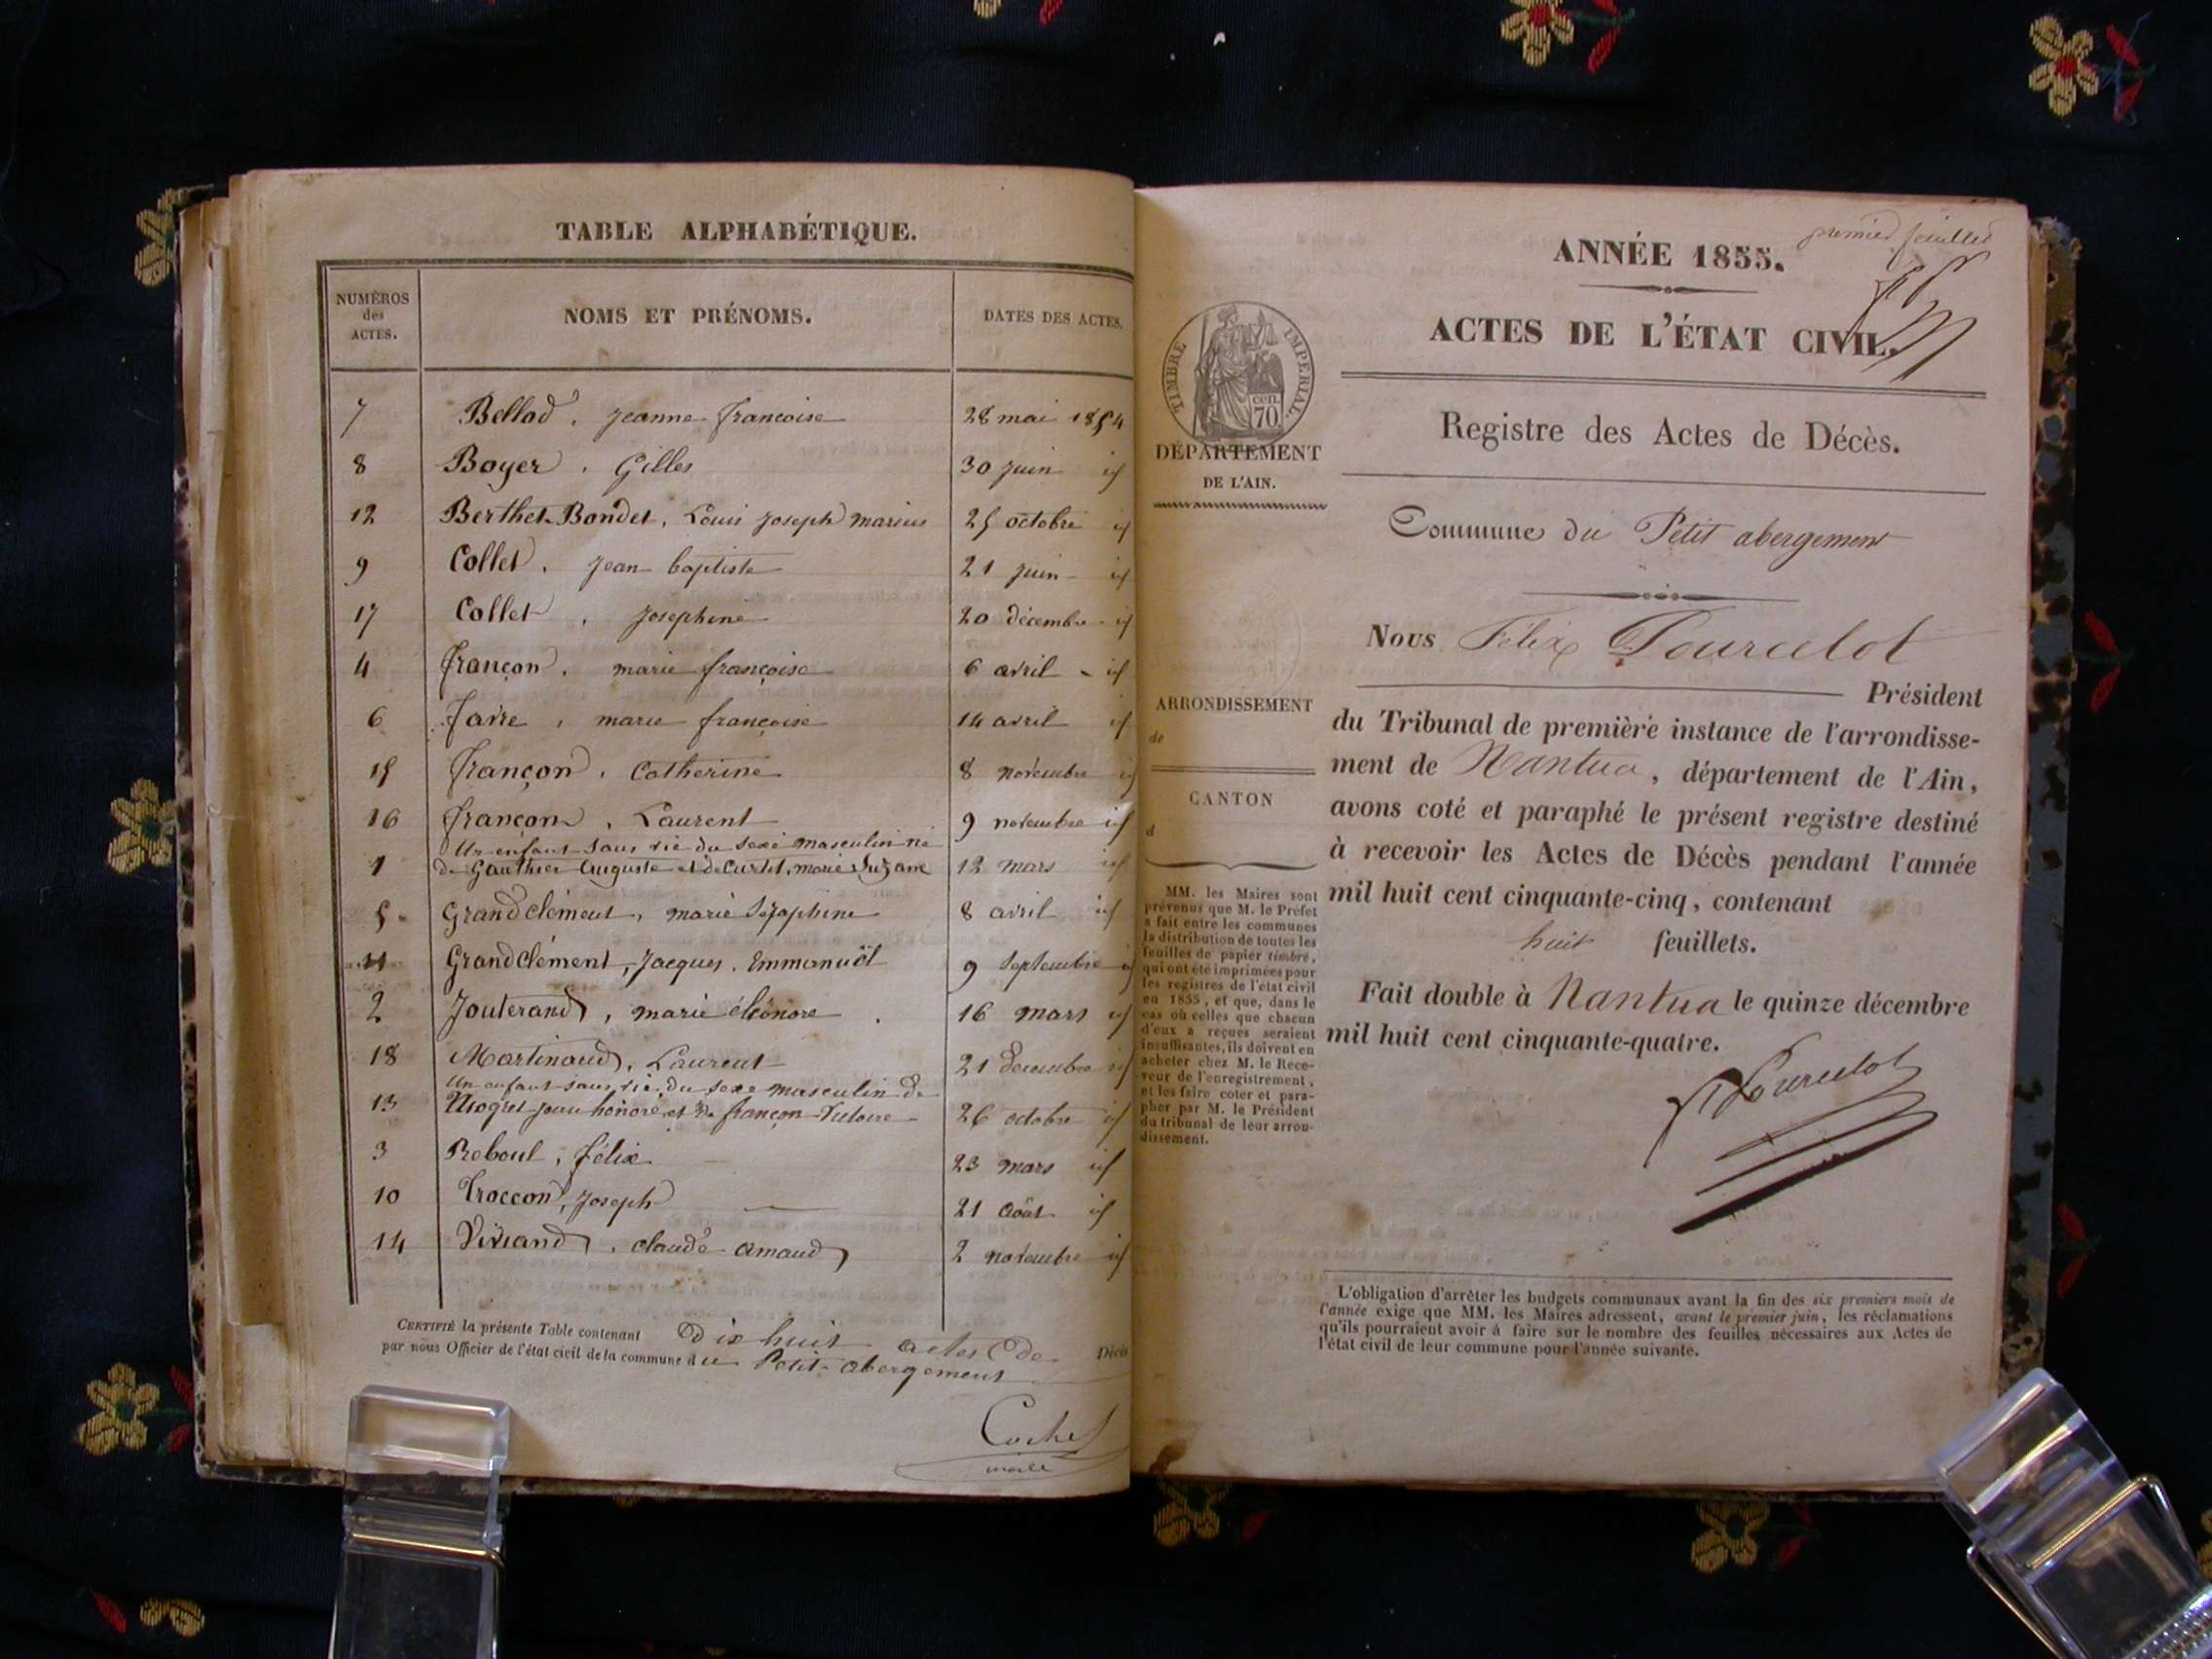 TABLE ALPHABÉTIQUE.
NUMÉROS des ACTES.
NOMS ET PRÉNOMS.
DATES DES ACTES.
7 Bellod, jeanne françoise 28 mai 1854
8 Boyer, Gilles 30 juin id
12 Berthet-Bondet, Louis joseph marius 25 octobre id
9 Collet, jean baptiste 21 juin id
17 Collet, josephine 20 décembre id
4 françon, marie françoise 6 avril id
6 favre, marie françoise 14 avril id
15 françon, Catherine 8 novembre id
16 françon, Laurent 9 novembre id
Un enfant sans vie du sexe masculin né
1 de Gauthier Auguste et de Curtet, marie Suzane 12 mars id
5 Grandclément, marie Séraphine 8 avril id
11 Grandclément, Jacques, Emmanuël 9 Septembre id
2 Jouterand, marie éléonore 16 mars id
18 Martinaud, Laurent 21 décembre id
Un enfant sans vie, du sexe masculin de
13 jean honoré et de françon Victoire 26 octobre id
3 Reboul, félix 23 mars id
10 Troccon, Joseph 21 août id
14 Viviand, claude amand 2 novembre id
CERTIFIÉ la présente Table contenant dix huit actes de Décès
par nous Officier de l'état civil de la commune du Petit-abergement
Cochet
maire
premier feuillet
ANNÉE 1855.
ACTES DE L'ÉTAT CIVIL.
TIMBRE IMPÉRIAL.
cen.
70.
DÉPARTEMENT
DE L'AIN.
Registre des Actes de Décès.
Commune du Petit abergement
Nous Félix Pourcelot
Président
du Tribunal de première instance de l'arrondisse-
ment de Nantua, département de l'Ain,
avons coté et paraphé le présent registre destiné
à recevoir les Actes de Décès pendant l'année
mil huit cent cinquante-cinq, contenant
huit feuillets.
Fait double à Nantua le quinze décembre
mil huit cent cinquante-quatre.
F Pourcelot
ARRONDISSEMENT
de
CANTON
d
MM. les Maires sont
prévenus que M. le Préfet
a fait entre les communes
la distribution de toutes les
feuilles de papier timbré,
qui ont été imprimées pour
les registres de l'état civil
en 1855, et que, dans le
cas où celles que chacun
d'eux a reçues seraient
insuffisantes, ils doivent en
acheter chez M. le Rece-
veur de l'enregistrement,
et les faire coter et para-
pher par M. le Président
du tribunal de leur arron-
dissement.
L'obligation d'arrêter les budgets communaux avant la fin des six premiers mois de
l'année exige que MM. les Maires adressent, avant le premier juin, les réclamations
qu'ils pourraient avoir à faire sur le nombre des feuilles nécessaires aux Actes de
l'état civil de leur commune pour l'année suivante.